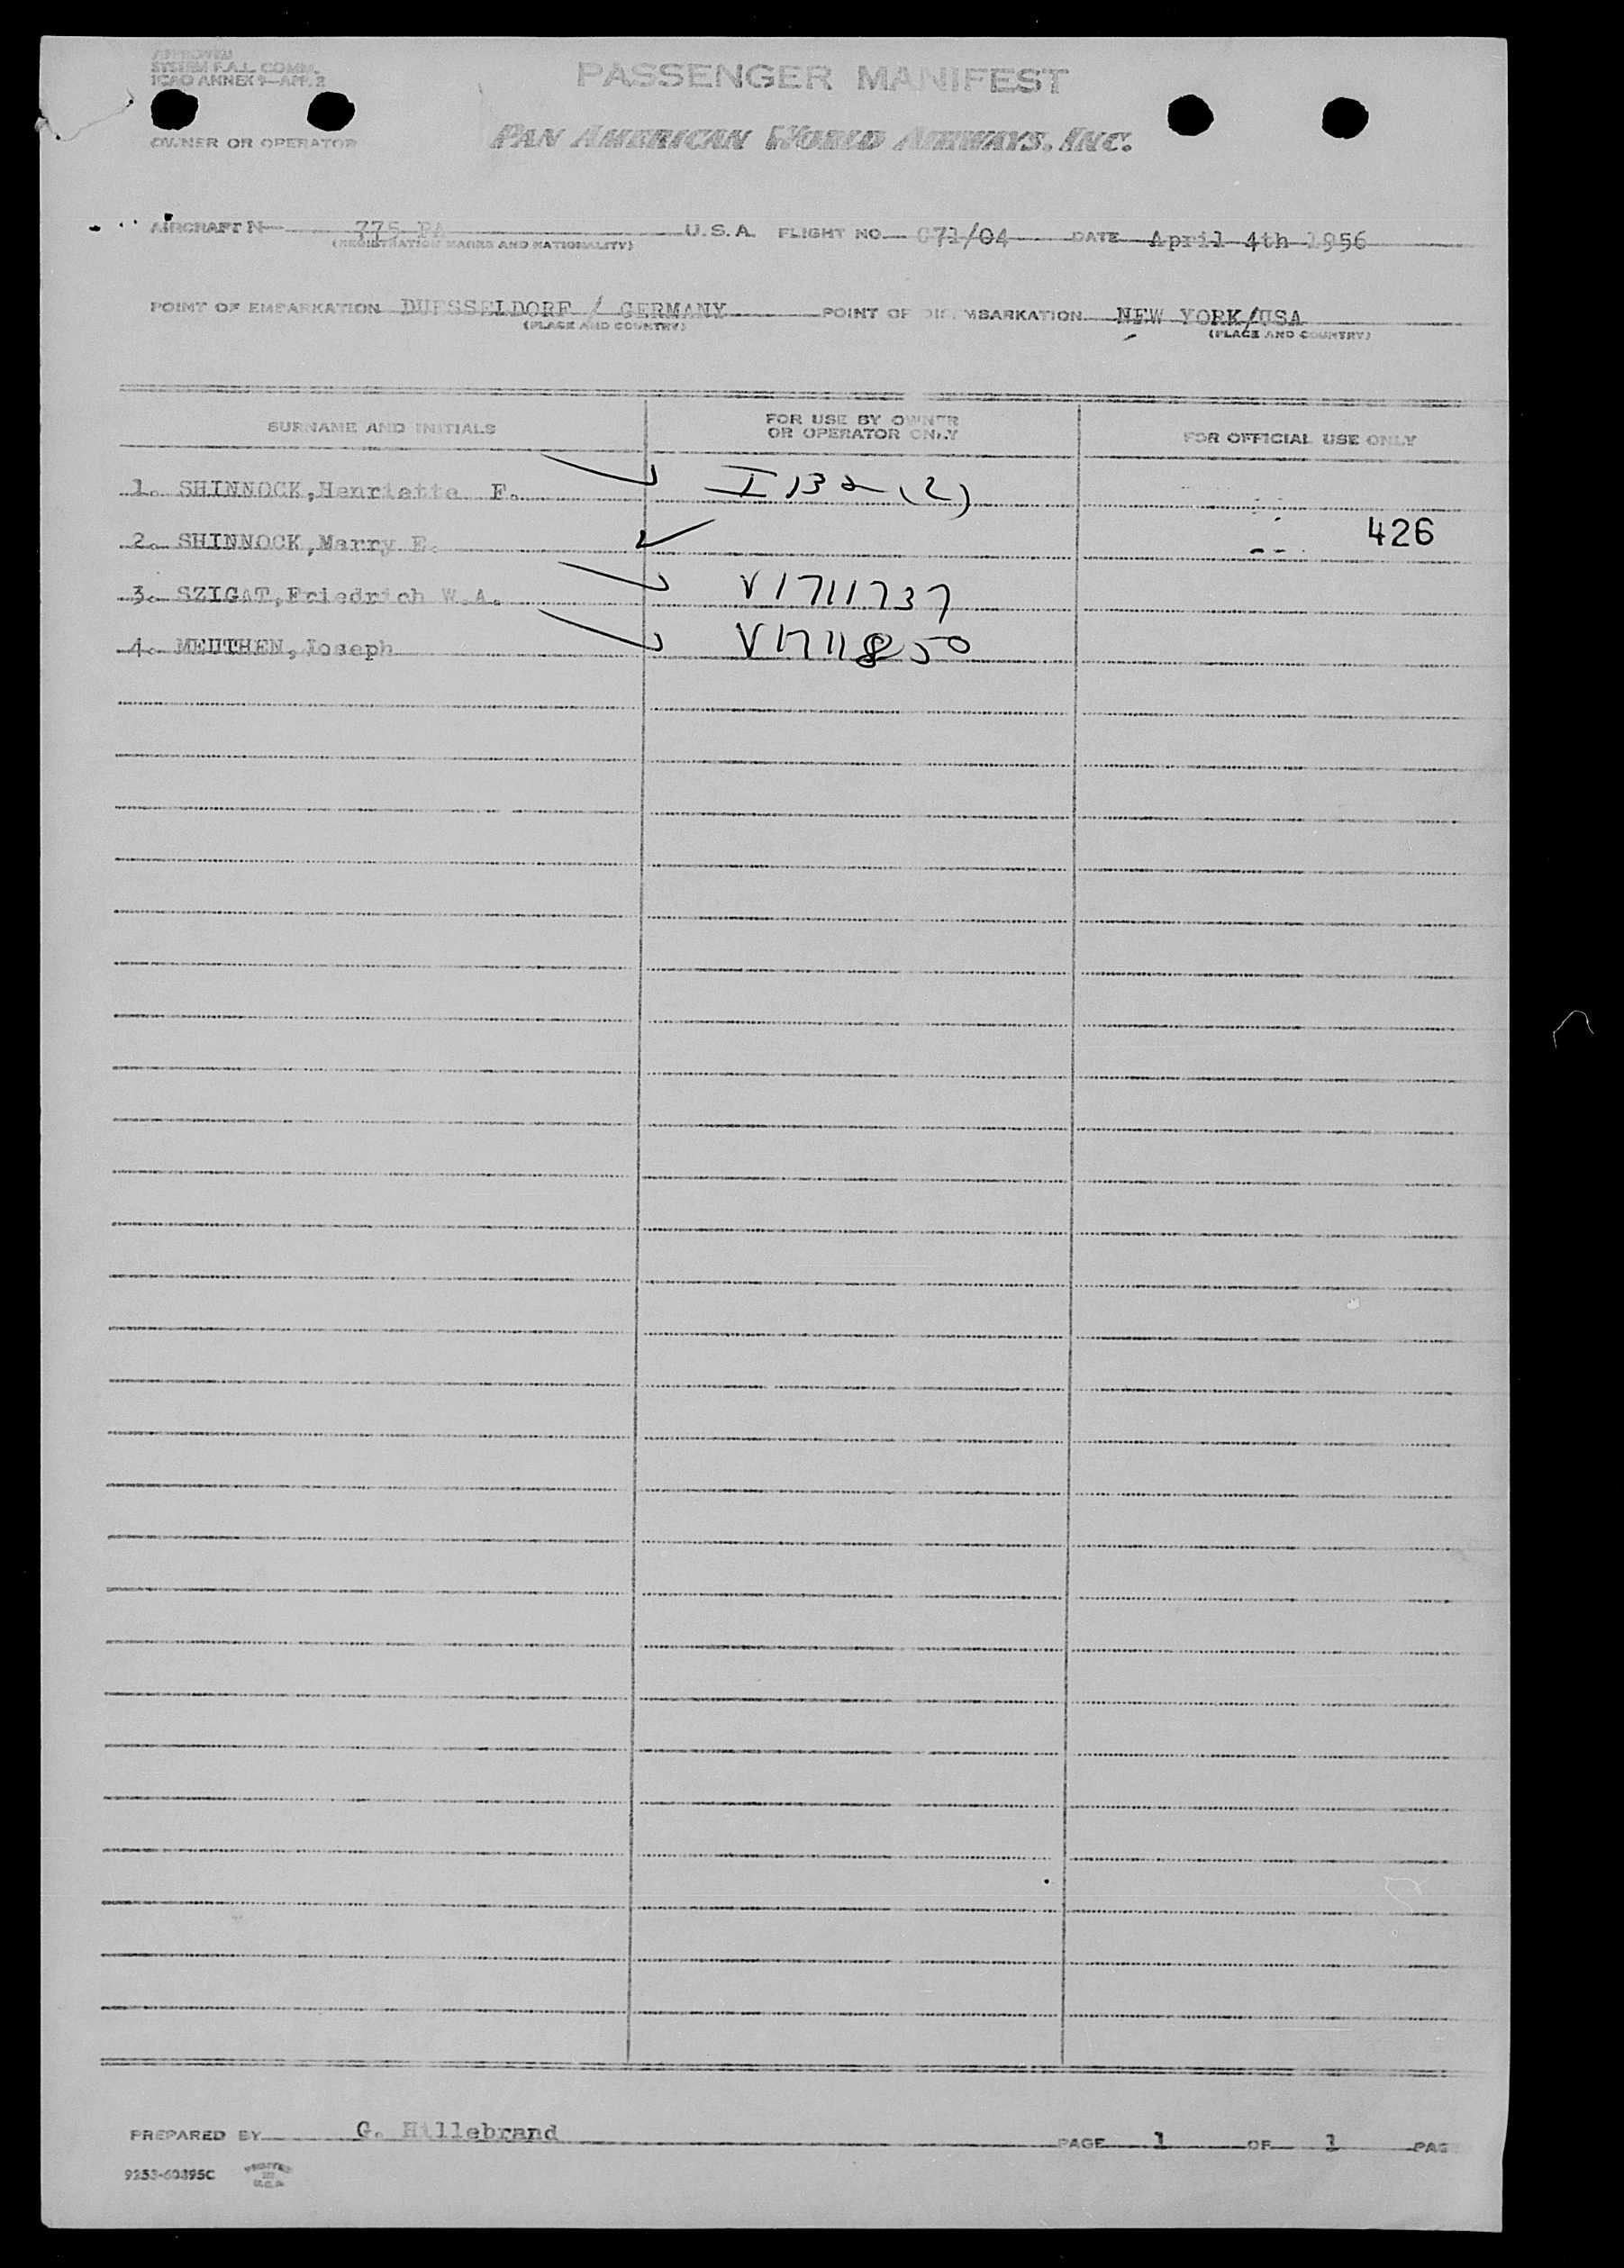 APPROVED
SYSTEM F.A.L. COMM.
ICAO ANNEX 9—APP. 2
PASSENGER MANIFEST
OWNER OR OPERATOR PAN AMERICAN WORLD AIRWAYS, INC.
AIRCRAFT N 775 PA U.S.A. FLIGHT NO. 071/04 DATE April 4th 1956
(REGISTRATION MARKS AND NATIONALITY)
POINT OF EMBARKATION DUESSELDORF / GERMANY POINT OF DISEMBARKATION NEW YORK/USA
(PLACE AND COUNTRY) (PLACE AND COUNTRY)
SURNAME AND INITIALS FOR USE BY OWNER OR OPERATOR ONLY FOR OFFICIAL USE ONLY
1. SHINNOCK,Henriette F. I 132 (2)
2. SHINNOCK,Marry E. 426
3. SZIGAT,Friedrich W.A. V1711737
4. MEUTHEN,Joseph V1711850
PREPARED BY G. Hillebrand PAGE 1 OF 1 PAG
9253-60395C PRINTED IN U.S.A.